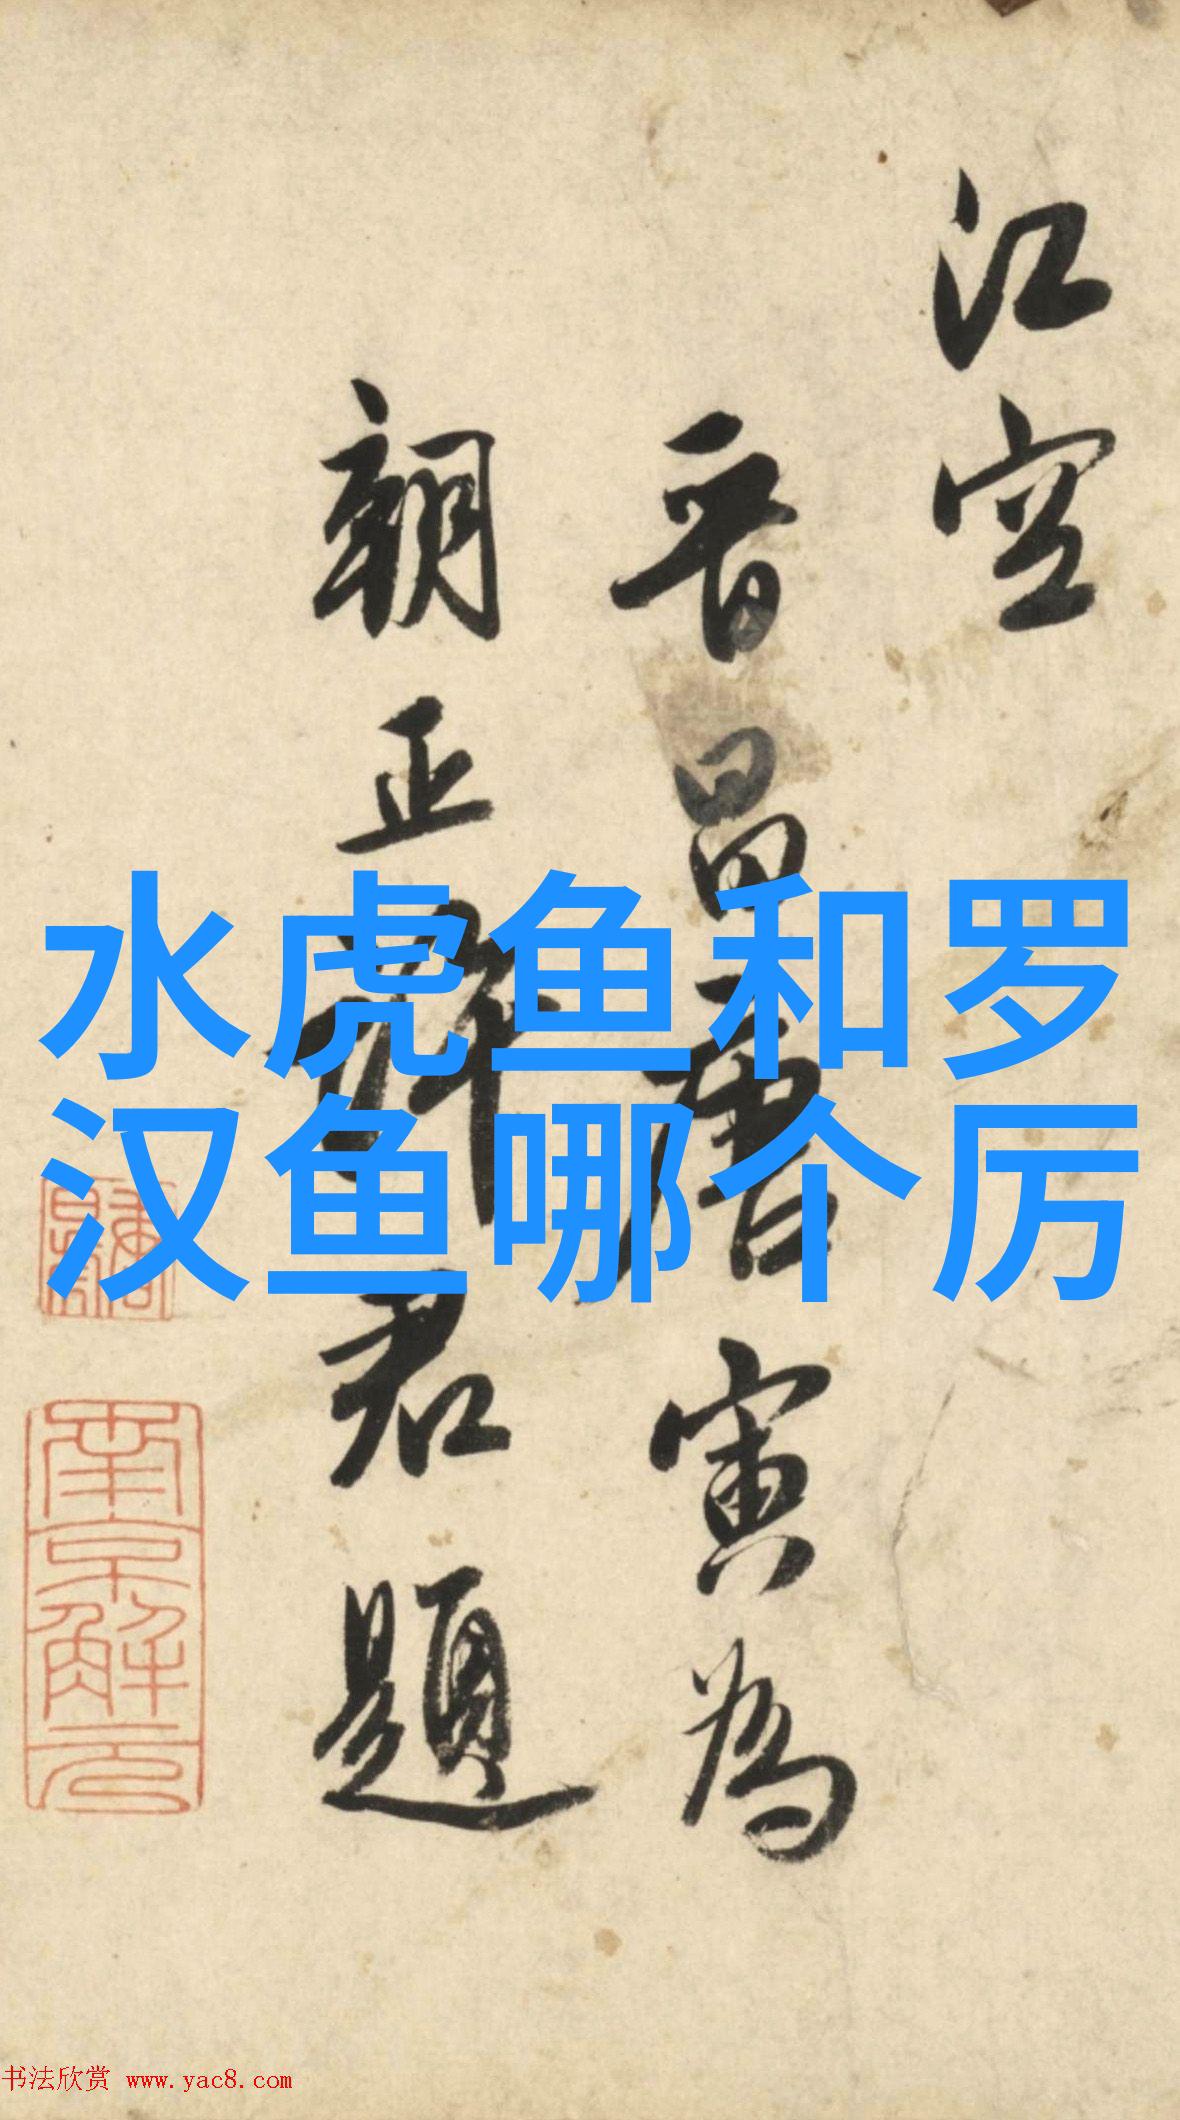 水虎鱼和罗
汉鱼哪个厉
江空
晋昌唐寅為
朝正君題
南京解元
书法欣赏 www.yac8.com